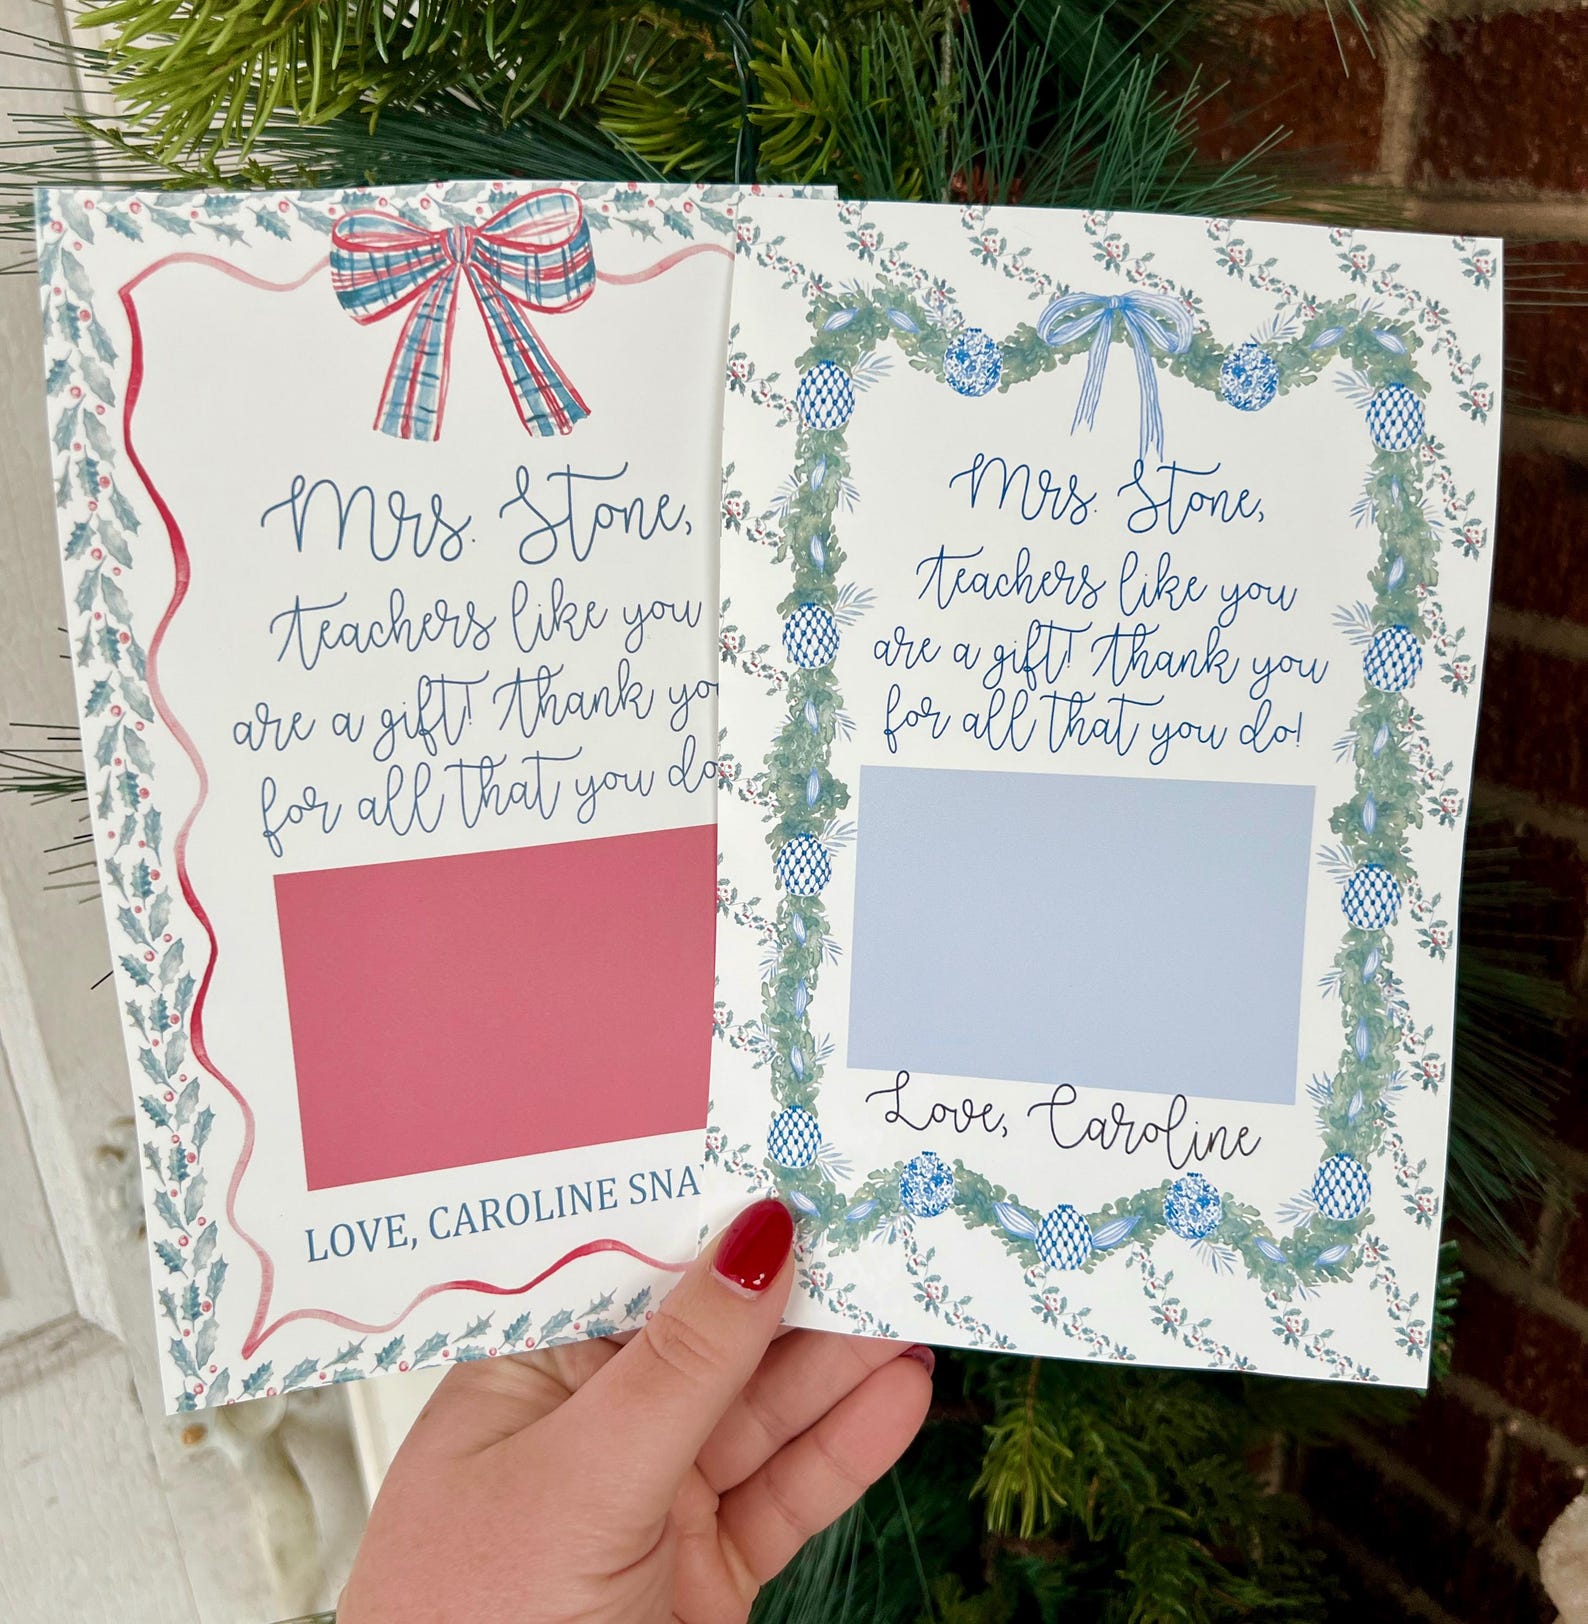 Mrs. Stone,
teachers like you
are a gift! thank yo
for all that you do
LOVE, CAROLINE SNA
Mrs. Stone,
teachers like you
are a gift! thank you
for all that you do!
Love, Caroline